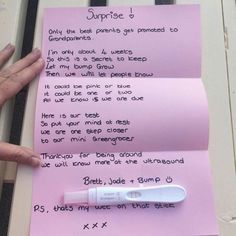 Surprise!
Only the best parents get promoted to
Grandparents.
I'm only about 4 weeks
So this is a secret to keep
Let my bump Grow
Then we will let people know
It could be pink or blue
It could be one or two
All we know is we are due
Here is our test
So put your mind at rest
We are one step closer
to our mini Greengrocer
Thankyou for being around
we will know more at the ultrasound
Brett, Jade + Bump ☺
P.S. thats my wee on that stick
x x x